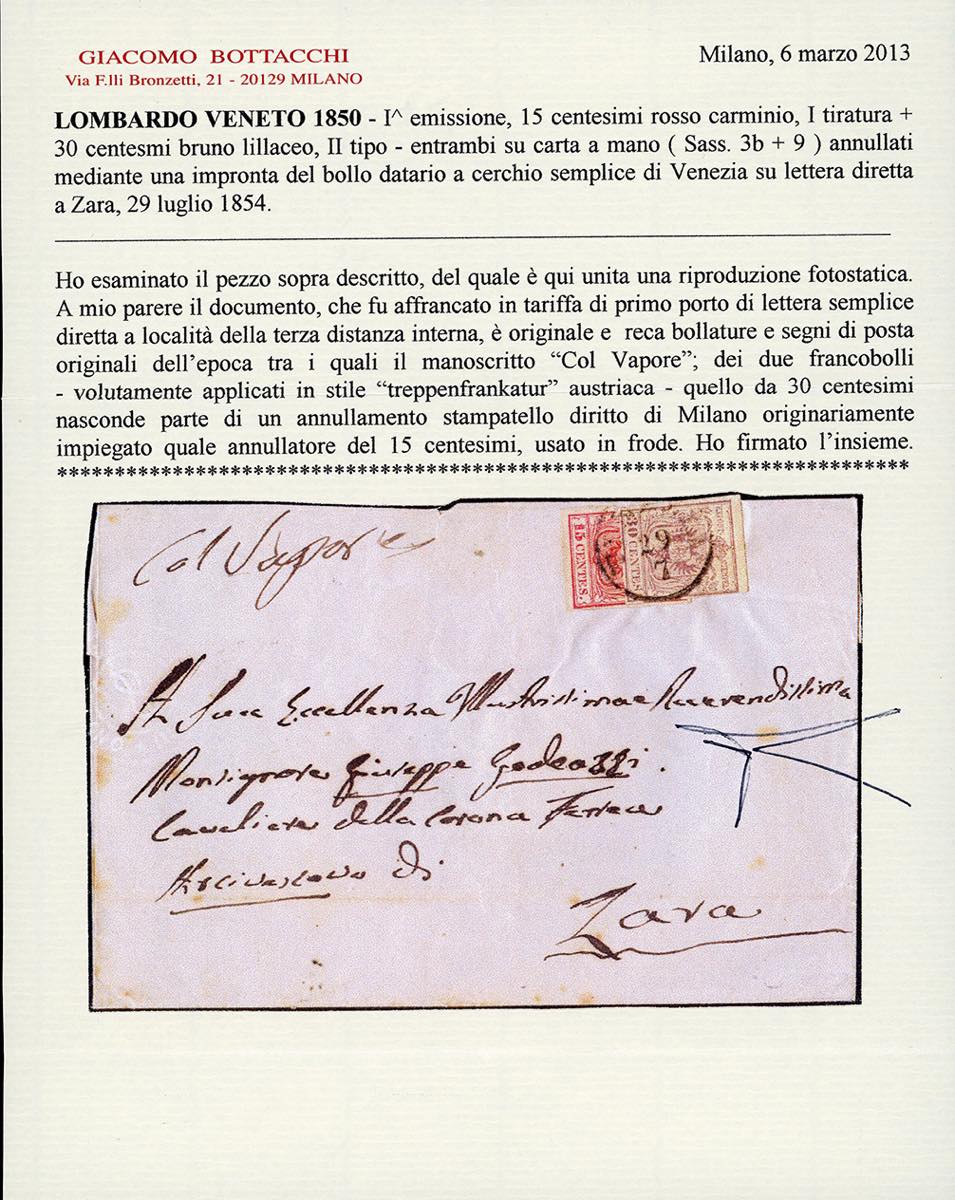 GIACOMO BOTTACCHI
Via F.lli Bronzetti, 21 - 20129 MILANO
Milano, 6 marzo 2013
LOMBARDO VENETO 1850 - I^ emissione, 15 centesimi rosso carminio, I tiratura +
30 centesmi bruno lillaceo, II tipo - entrambi su carta a mano ( Sass. 3b + 9 ) annullati
mediante una impronta del bollo datario a cerchio semplice di Venezia su lettera diretta
a Zara, 29 luglio 1854.
Ho esaminato il pezzo sopra descritto, del quale è qui unita una riproduzione fotostatica.
A mio parere il documento, che fu affrancato in tariffa di primo porto di lettera semplice
diretta a località della terza distanza interna, è originale e reca bollature e segni di posta
originali dell'epoca tra i quali il manoscritto “Col Vapore”; dei due francobolli
- volutamente applicati in stile “treppenfrankatur” austriaca - quello da 30 centesimi
nasconde parte di un annullamento stampatello diritto di Milano originariamente
impiegato quale annullatore del 15 centesimi, usato in frode. Ho firmato l'insieme.
******************************************************************************
Col Vapore
15 CENTES.
30 CENTES.
29
7
Sua Eccellenza Illustrissima e Reverendissima
Monsignore Giuseppe Godeazzi.
Cavaliere della Corona Ferrea
Arcivescovo di
Zara